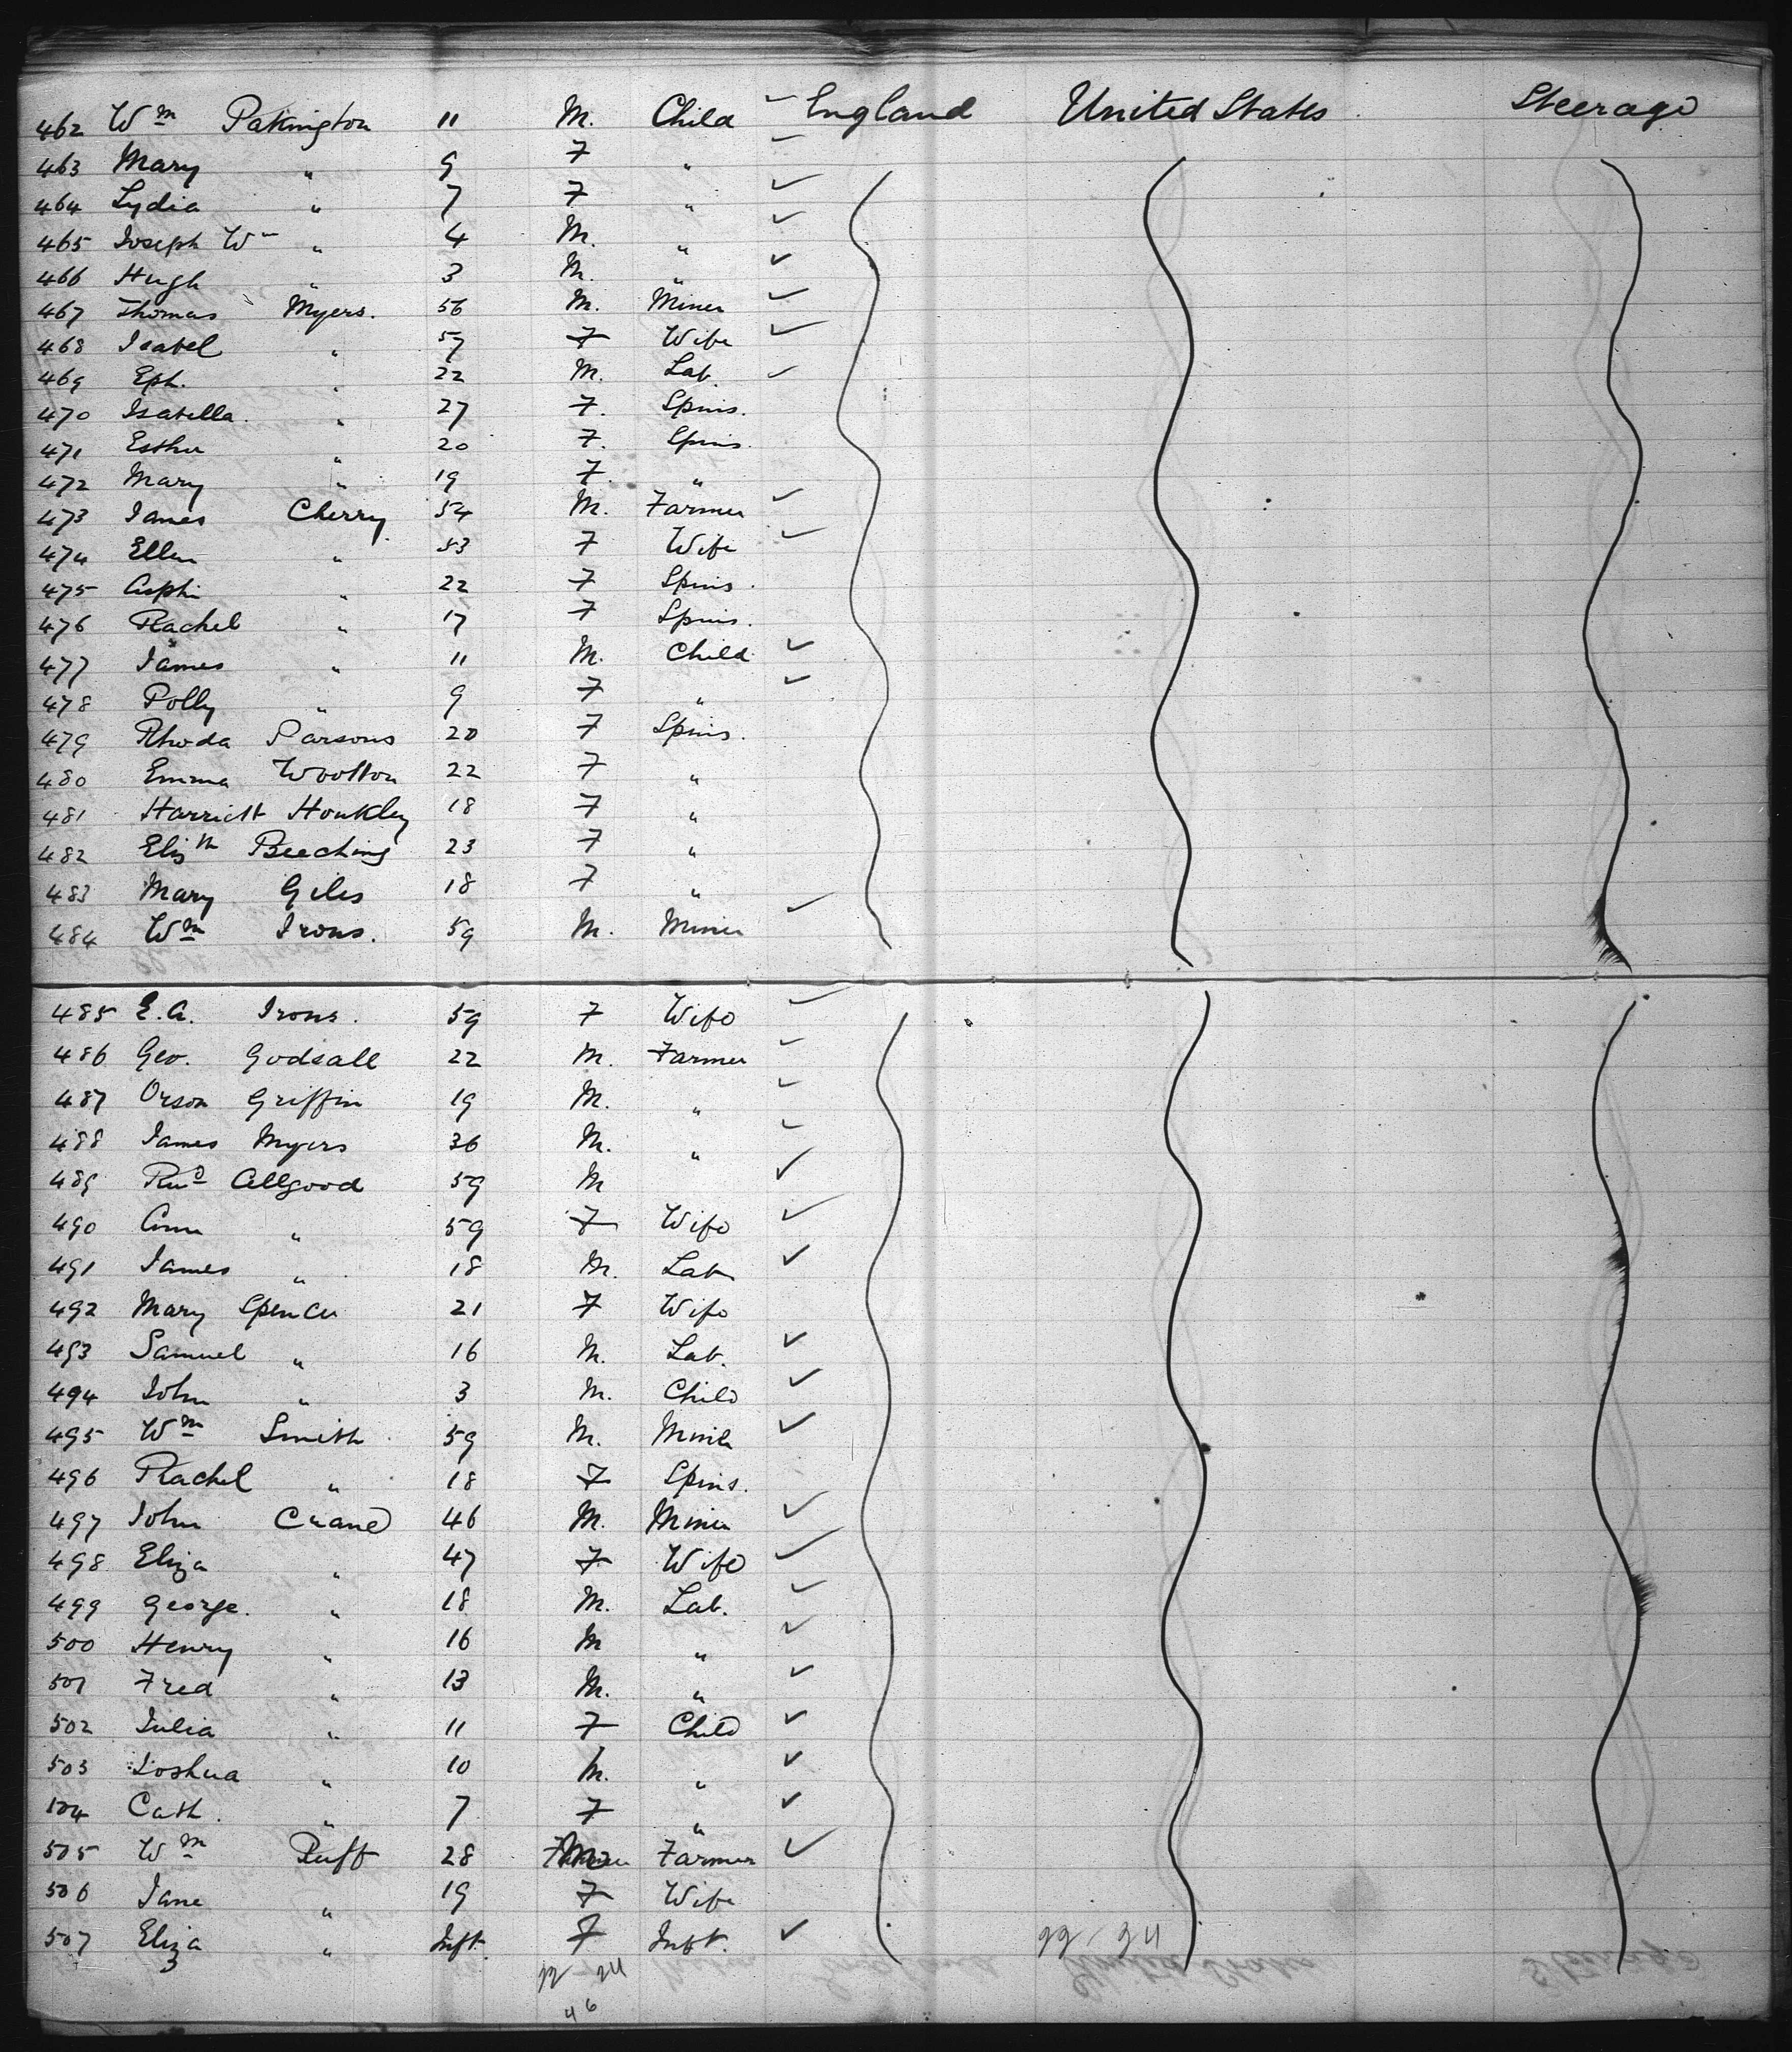 462 Wm Pakington 11 M. Child England United States Steerage
463 Mary " 9 F "
464 Lydia " 7 F "
465 Joseph Wm " 4 M. "
466 Hugh " 3 M. "
467 Thomas Myers. 56 M. Miner
468 Isabel " 57 F Wife
469 Eph. " 22 M. Lab.
470 Isabella " 27 F. Spins.
471 Esther " 20 F. Spins
472 Mary " 19 F. "
473 James Cherry 54 M. Farmer
474 Ellen " 53 F Wife
475 " 22 F Spins.
476 Rachel " 17 F Spins.
477 James " 11 M. Child
478 Polly " 9 F "
479 Rhoda Parsons 20 F Spins.
480 Emma Wootton 22 F "
481 Harriett Honkley 18 F "
482 Elizth Beeching 23 F "
483 Mary Giles 18 F "
484 Wm Irons. 59 M. Miner
485 E.A. Irons. 59 F Wife
486 Geo. Godsall 22 M. Farmer
487 Orson Griffin 19 M. "
488 James Myers 36 M. "
489 Allgood 59 M
490 Ann " 59 F Wife
491 James " 18 M. Lab
492 Mary Spencer 21 F Wife
493 Samuel " 16 M. Lab.
494 John " 3 M. Child
495 Wm Smith 59 M. Miner
496 Rachel " 18 F Spins.
497 John Crane 46 M. Miner
498 Eliza " 47 F Wife
499 George. " 18 M. Lab.
500 Henry " 16 M "
501 Fred " 13 M. "
502 Julia " 11 F Child
503 Joshua " 10 M. "
504 Cath. " 7 F "
505 Wm 28 M Farmer
506 Jane " 19 F Wife
507 Eliza " Inft. F Inft.
22 24 22 24
46